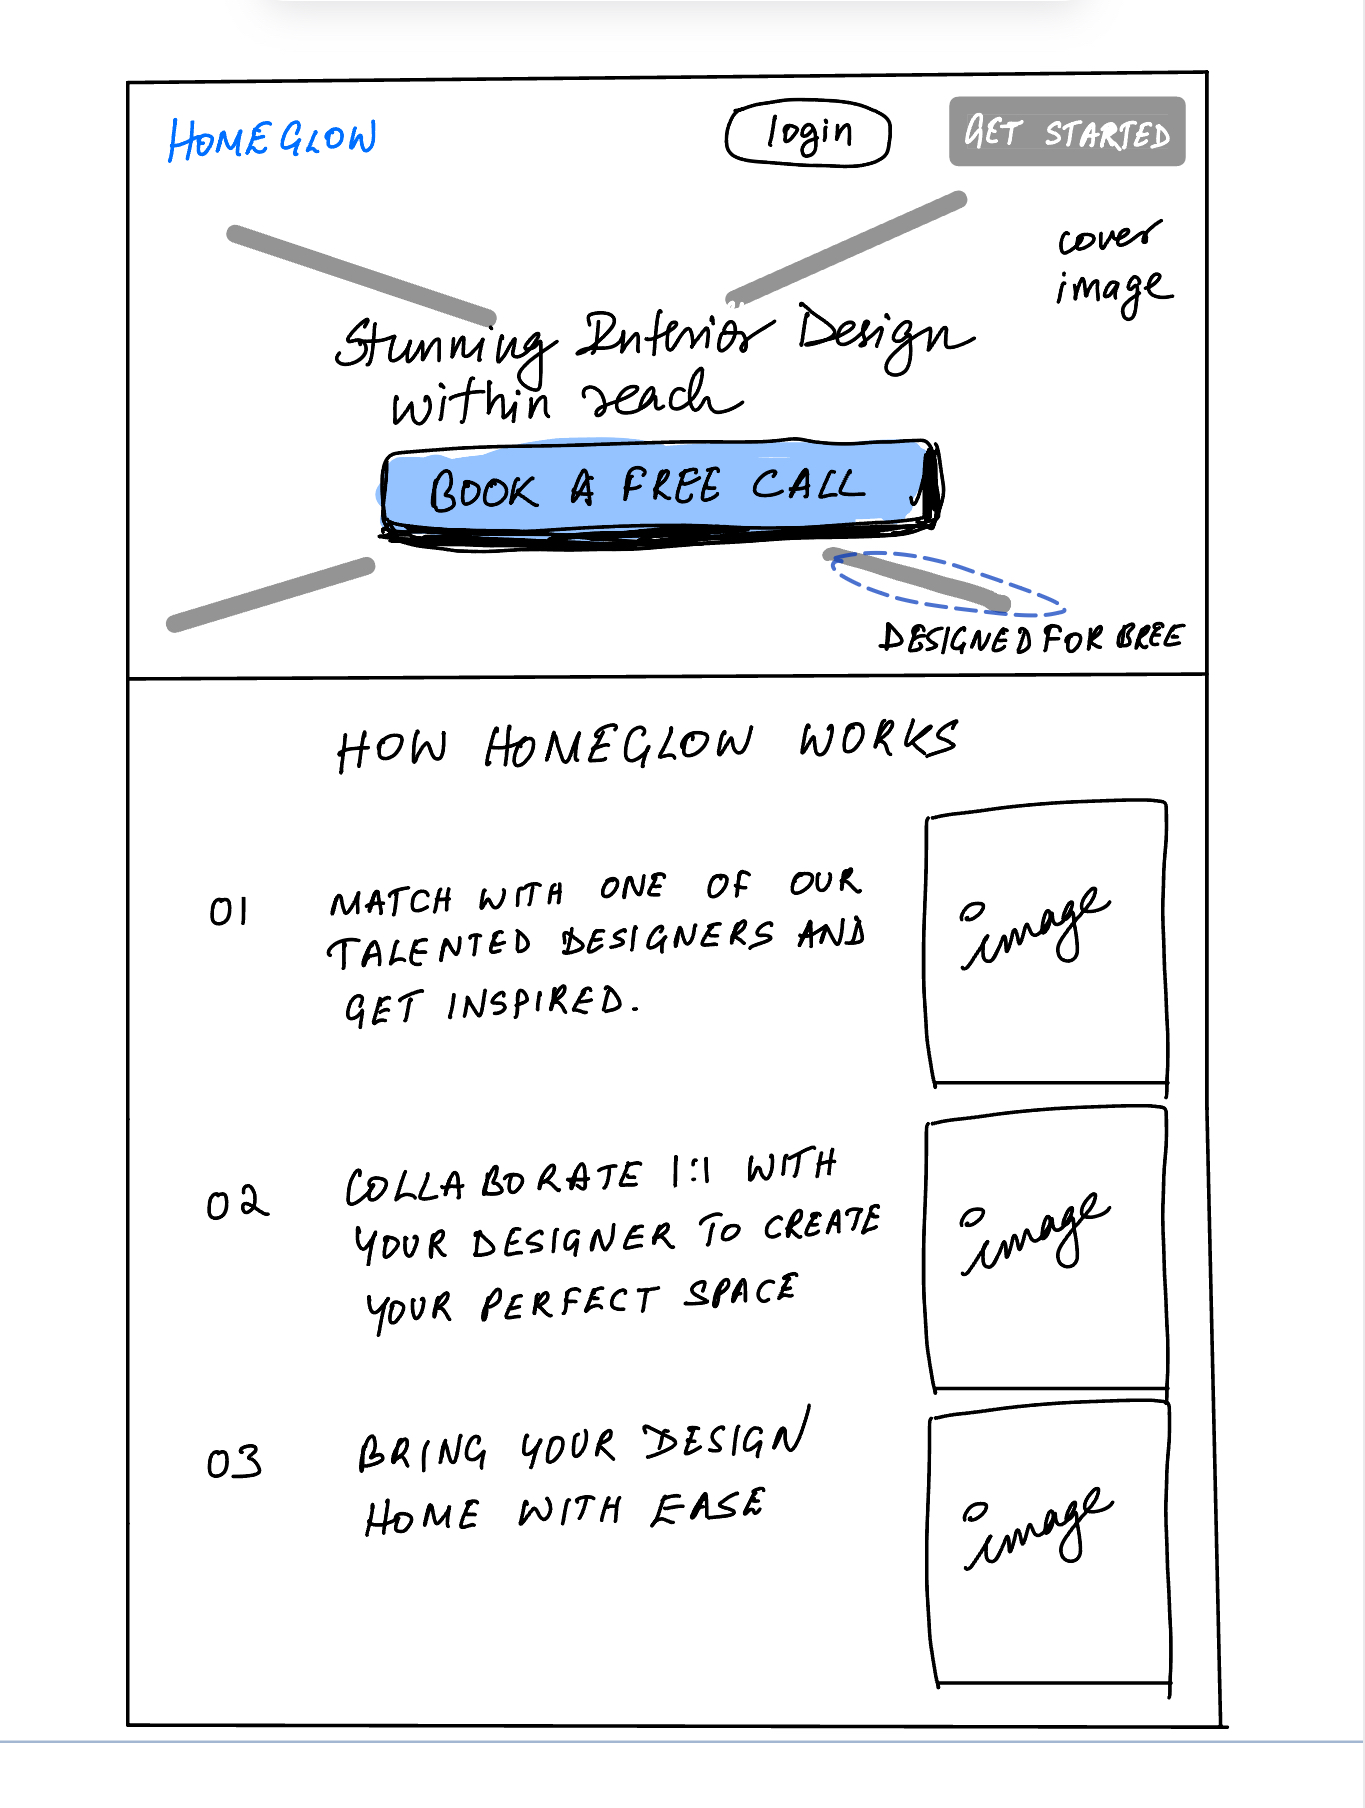 HOMEGLOW
login
GET STARTED
cover
image
Stunning Interior Design
within reach
BOOK A FREE CALL
DESIGNED FOR BREE
HOW HOMEGLOW WORKS
01
MATCH WITH ONE OF OUR
TALENTED DESIGNERS AND
GET INSPIRED.
image
02
COLLABORATE 1:1 WITH
YOUR DESIGNER TO CREATE
YOUR PERFECT SPACE
image
03
BRING YOUR DESIGN
HOME WITH EASE
image